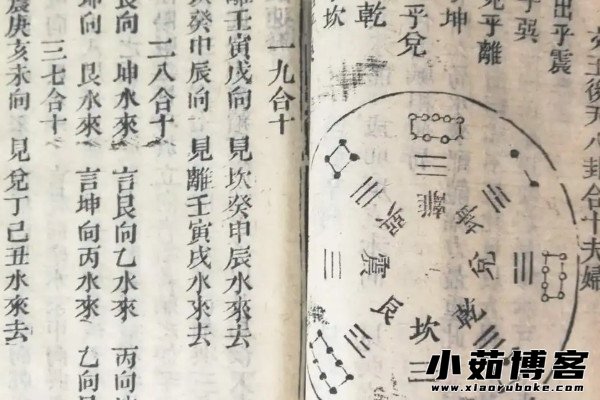 王後天八卦合十夫婦
出乎震
乎巽
見乎離
乎坤
乎兌
乾
坎
離
坤
兌
乾
坎
艮
震
巽
一九合十
離壬寅戌向 見坎癸申辰水來去
癸申辰向 見離壬寅戌水來去
二八合十
向 坤水來 言艮向乙水來 丙向
坤向 艮水來 言坤向丙水來 乙向
三七合十
震庚亥未向 見兌丁巳丑水來去
小茹博客
www.xiaoruboke.com